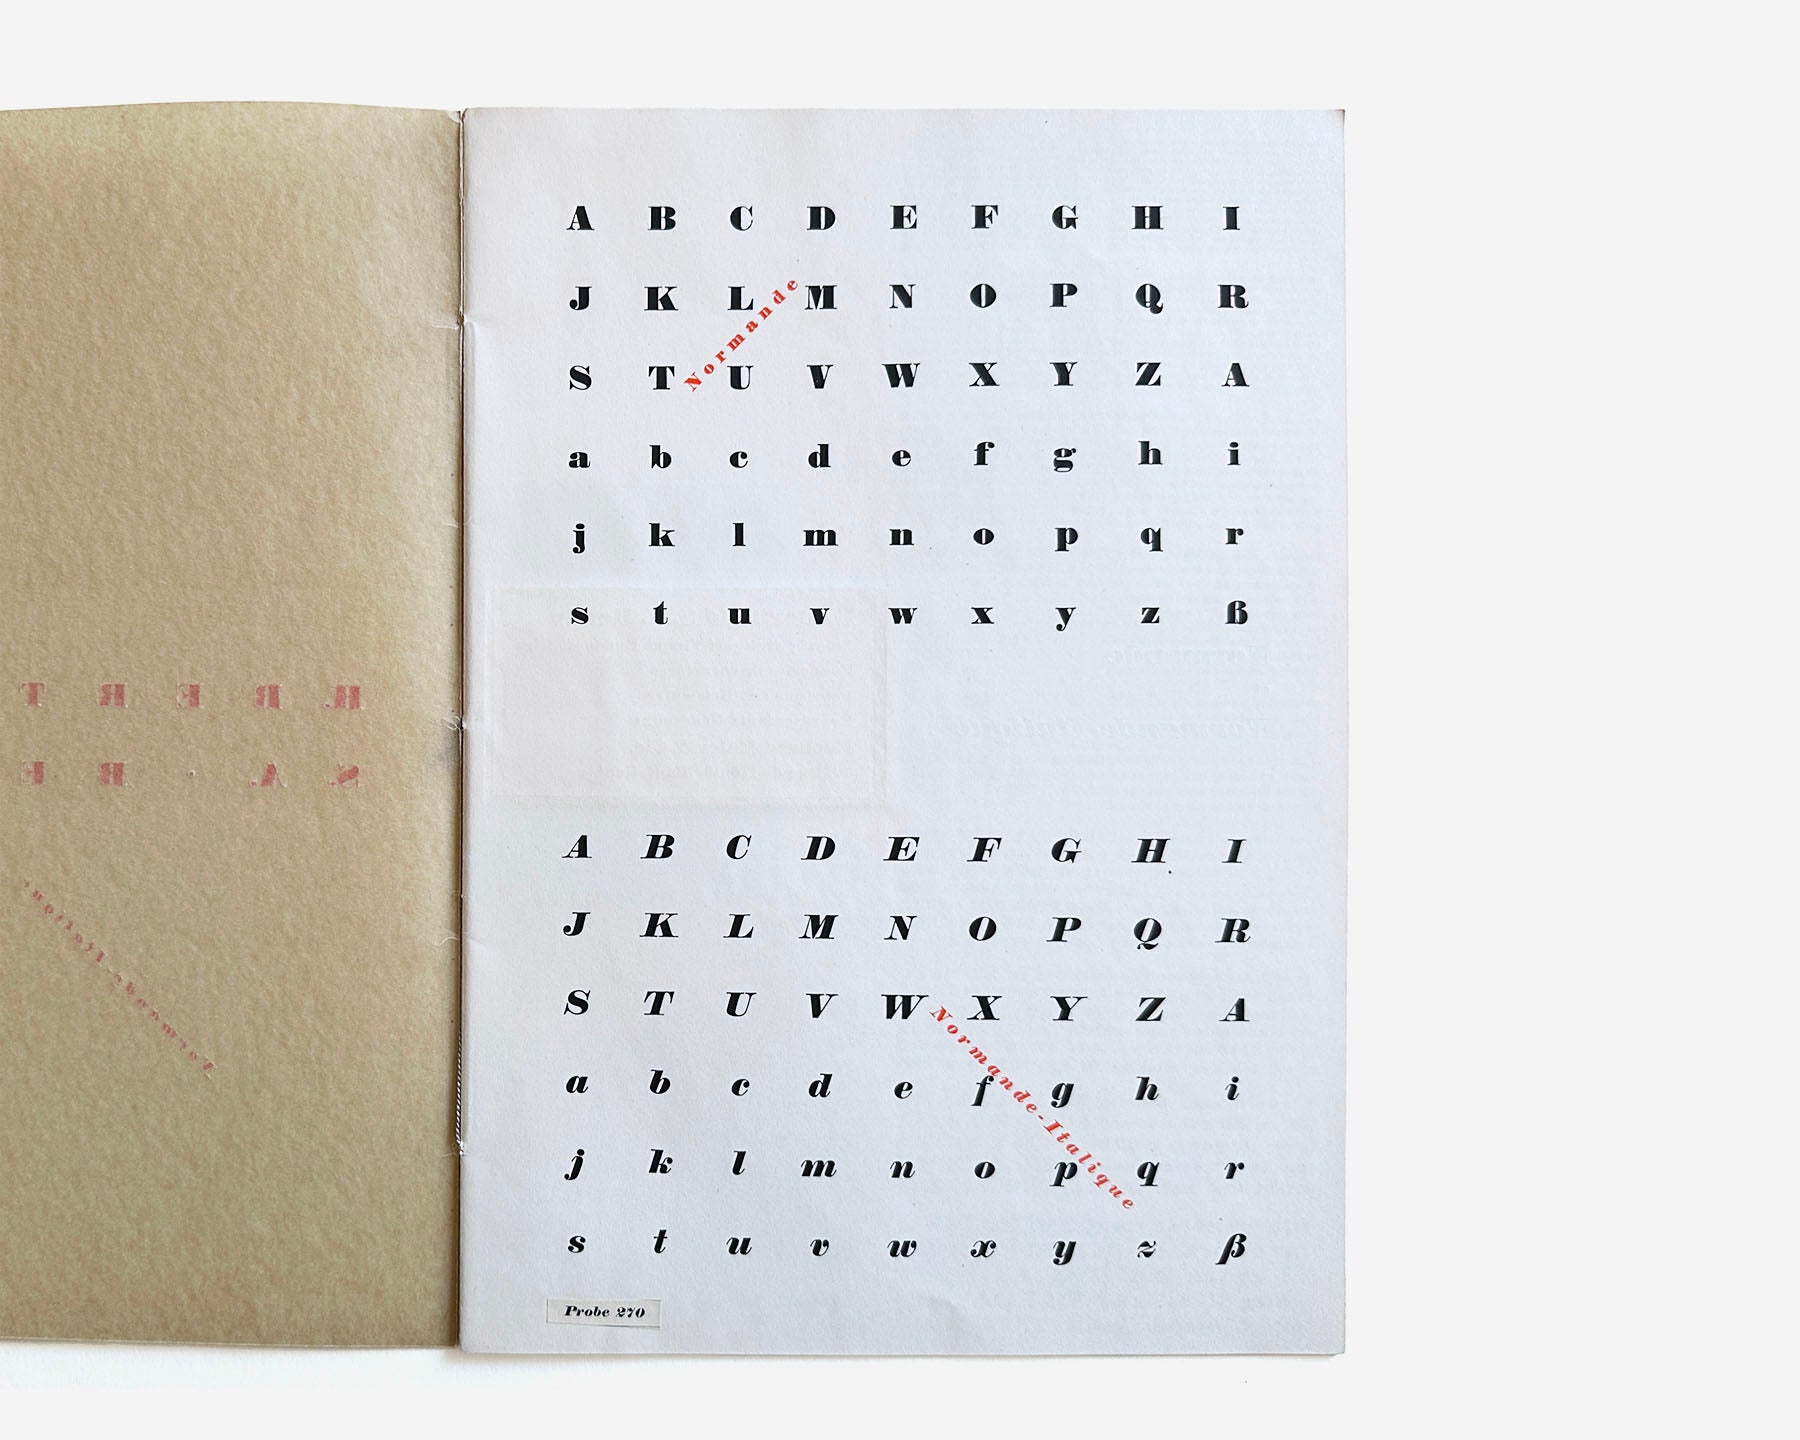 A B C D E F G H I
J K L M N O P Q R
Normande
S T U V W X Y Z A
a b c d e f g h i
j k l m n o p q r
s t u v w x y z ß
A B C D E F G H I
J K L M N O P Q R
S T U V W X Y Z A
Normande-Italique
a b c d e f g h i
j k l m n o p q r
s t u v w x y z ß
Probe 270